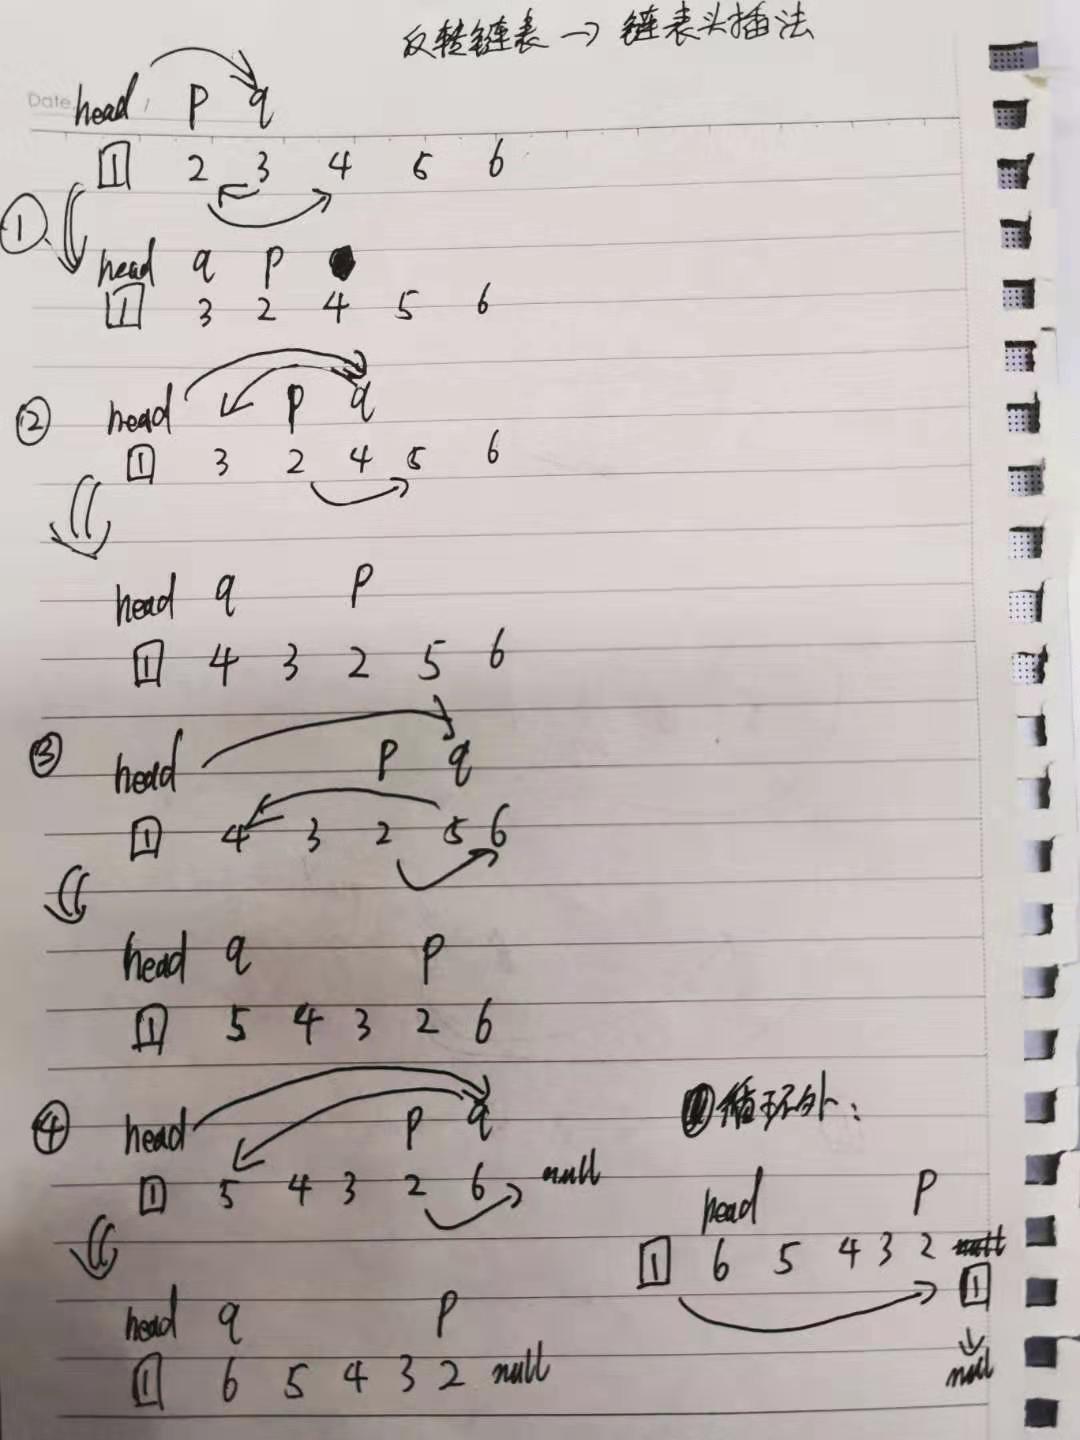 反转链表 → 链表头插法
Date
head p q
1 2 3 4 5 6
①
head q p
1 3 2 4 5 6
②
head p q
1 3 2 4 5 6
head q p
1 4 3 2 5 6
③
head p q
1 4 3 2 5 6
head q p
1 5 4 3 2 6
④
head p q
1 5 4 3 2 6 null
head q p
1 6 5 4 3 2 null
循环外:
head p
1 6 5 4 3 2 null
1
null